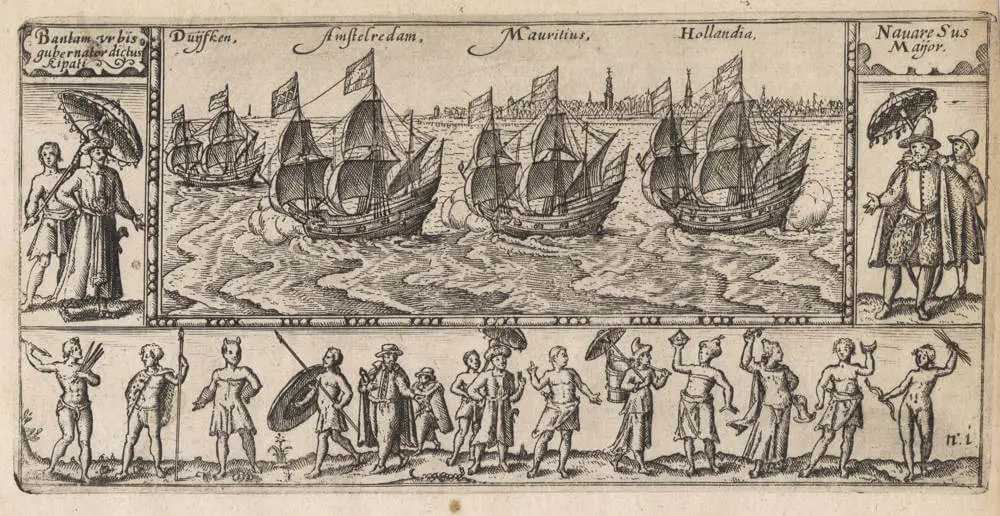 Bantam vrbis
gubernator dictus
kipati
Duijfken,
Amstelredam,
Mauritius,
Hollandia,
Nauare Sus
Maijor.
nº. i